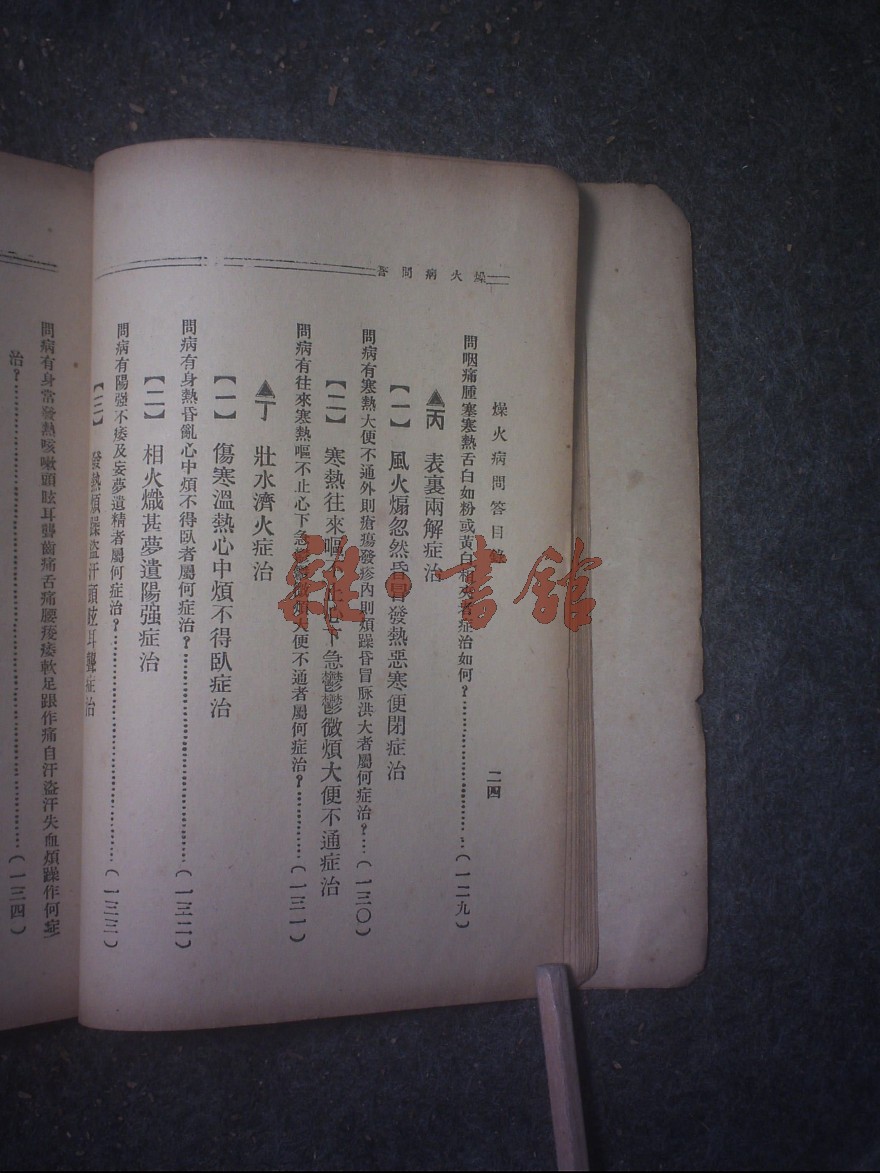 燥火病問答
燥火病問答目 二四
問咽痛腫塞寒熱舌白如粉或黃白相夾者症治如何？……(一二九)
▲丙 表裏兩解症治
【一】 風火煽忽然昏冒發熱惡寒便閉症治
問病有寒熱大便不通外則瘡瘍發疹內則煩躁昏冒脉洪大者屬何症治？…(一三〇)
【二】 寒熱往來嘔不止心下急鬱鬱微煩大便不通症治
問病有往來寒熱嘔不止心下急鬱鬱微煩大便不通者屬何症治？……(一三一)
▲丁 壯水濟火症治
【一】 傷寒溫熱心中煩不得臥症治
問病有身熱昏亂心中煩不得臥者屬何症治？……(一三二)
【二】 相火熾甚夢遺陽强症治
問病有陽强不痿及妄夢遺精者屬何症治？……(一三三)
【三】 發熱煩躁盜汗頭眩耳聾症治
問病有身常發熱咳嗽頭眩耳聾齒痛舌痛腰痠痿軟足跟作痛自汗盜汗失血煩躁作何症
治？……(一三四)
雜·書館